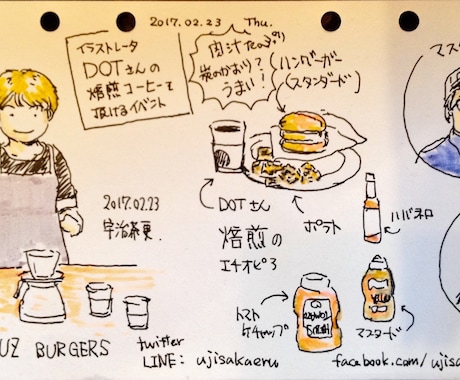 2017.02.23 Thu.
イラストレータ
DOTさんの
焙煎コーヒーで
頂けるイベント
肉汁たっぷり
炭のかおり?
うまい!
ハンバーガー
(スタンダード)
マス
DOTさん
焙煎の
エチオピア
ポテト
ハバネロ
2017.02.23
宇治茶更
トマト
ケチャップ
マスタード
UZ BURGERS
twitter
LINE: ujisakaeru
facebook.com/ujisa